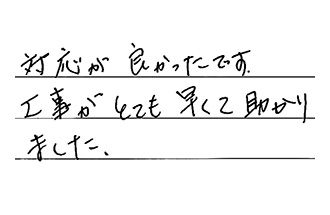 対応が良かったです.
工事がとても早くて助かり
ました.